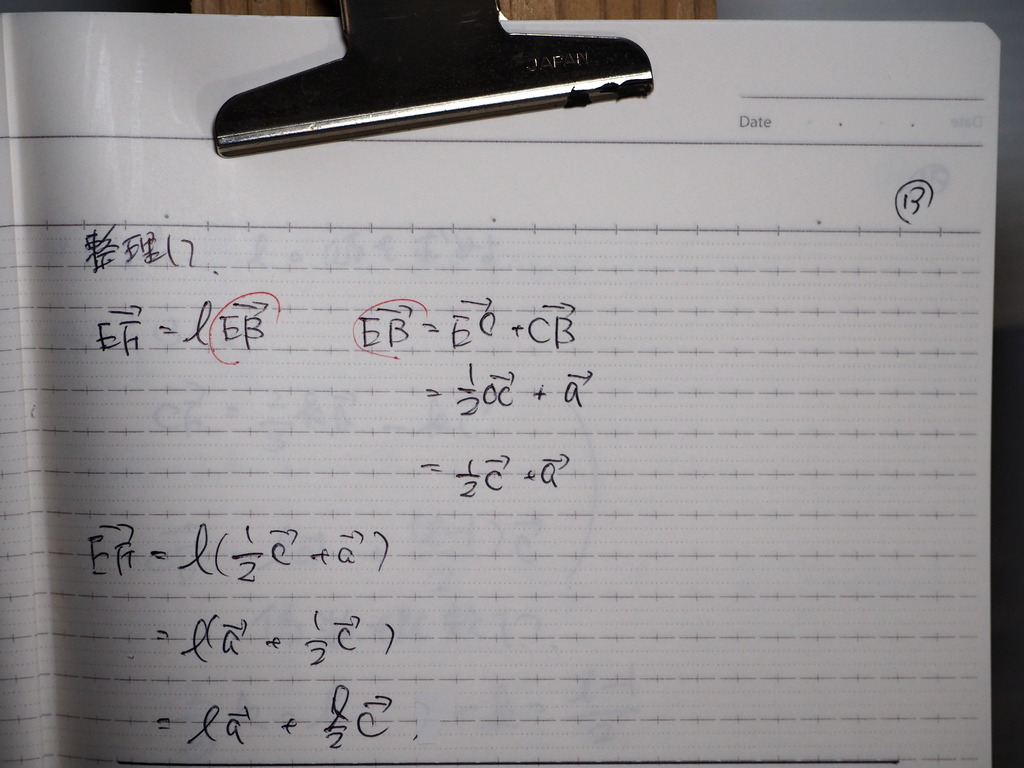 JAPAN
Date
⑬
整理して、
EF→ = ℓEB→ EB→ = EC→ + CB→
= 1/2 OC→ + a→
= 1/2 c→ + a→
EF→ = ℓ(1/2 c→ + a→)
= ℓ(a→ + 1/2 c→)
= ℓa→ + ℓ/2 c→.